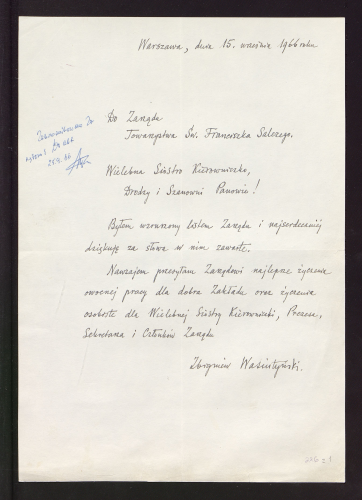 Warszawa, dnia 15. września 1966 roku
Do Zarządu
Towarzystwa Św. Franciszka Salezego.
Wielebna Siostro Kierowniczko,
Drodzy i Szanowni Panowie!
Byłem wzruszony listem Zarządu i najserdeczniej
dziękuję za słowa w nim zawarte.
Nawzajem przesyłam Zarządowi najlepsze życzenia
owocnej pracy dla dobra Zakładu oraz życzenia
osobiste dla Wielebnej Siostry Kierowniczki, Prezesa,
Sekretarza i Członków Zarządu
Zbigniew Wasiutyński.